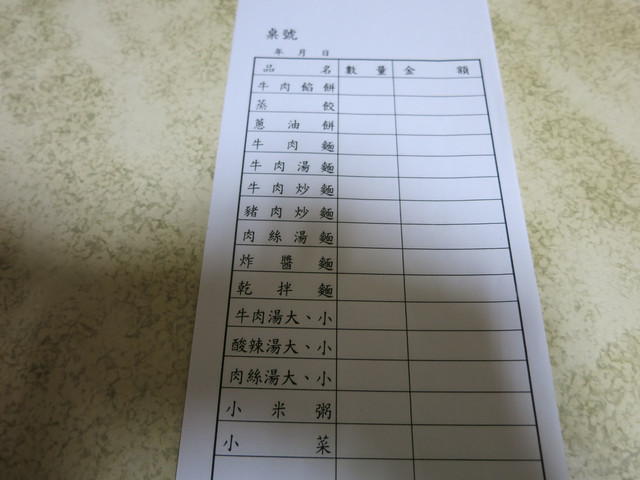 桌號
年 月 日
品名 數量 金額
牛肉餡餅
蒸餃
蔥油餅
牛肉麵
牛肉湯麵
牛肉炒麵
豬肉炒麵
肉絲湯麵
炸醬麵
乾拌麵
牛肉湯大、小
酸辣湯大、小
肉絲湯大、小
小米粥
小菜